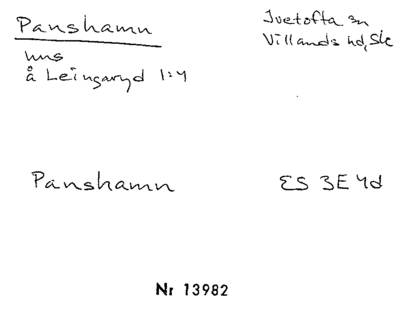 Panshamn
Ivetofta sn
Villands hd, Sk
hms
å Leingaryd 1:4
Panshamn
ES 3E 4d
Nr 13982